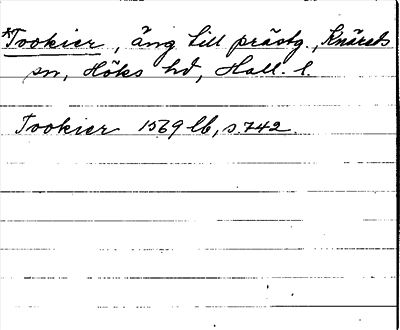 *Tvokier, äng till prästg., Knäreds
sn, Höks hd, Hall. l.
Tvokier 1569 lb, s. 742.